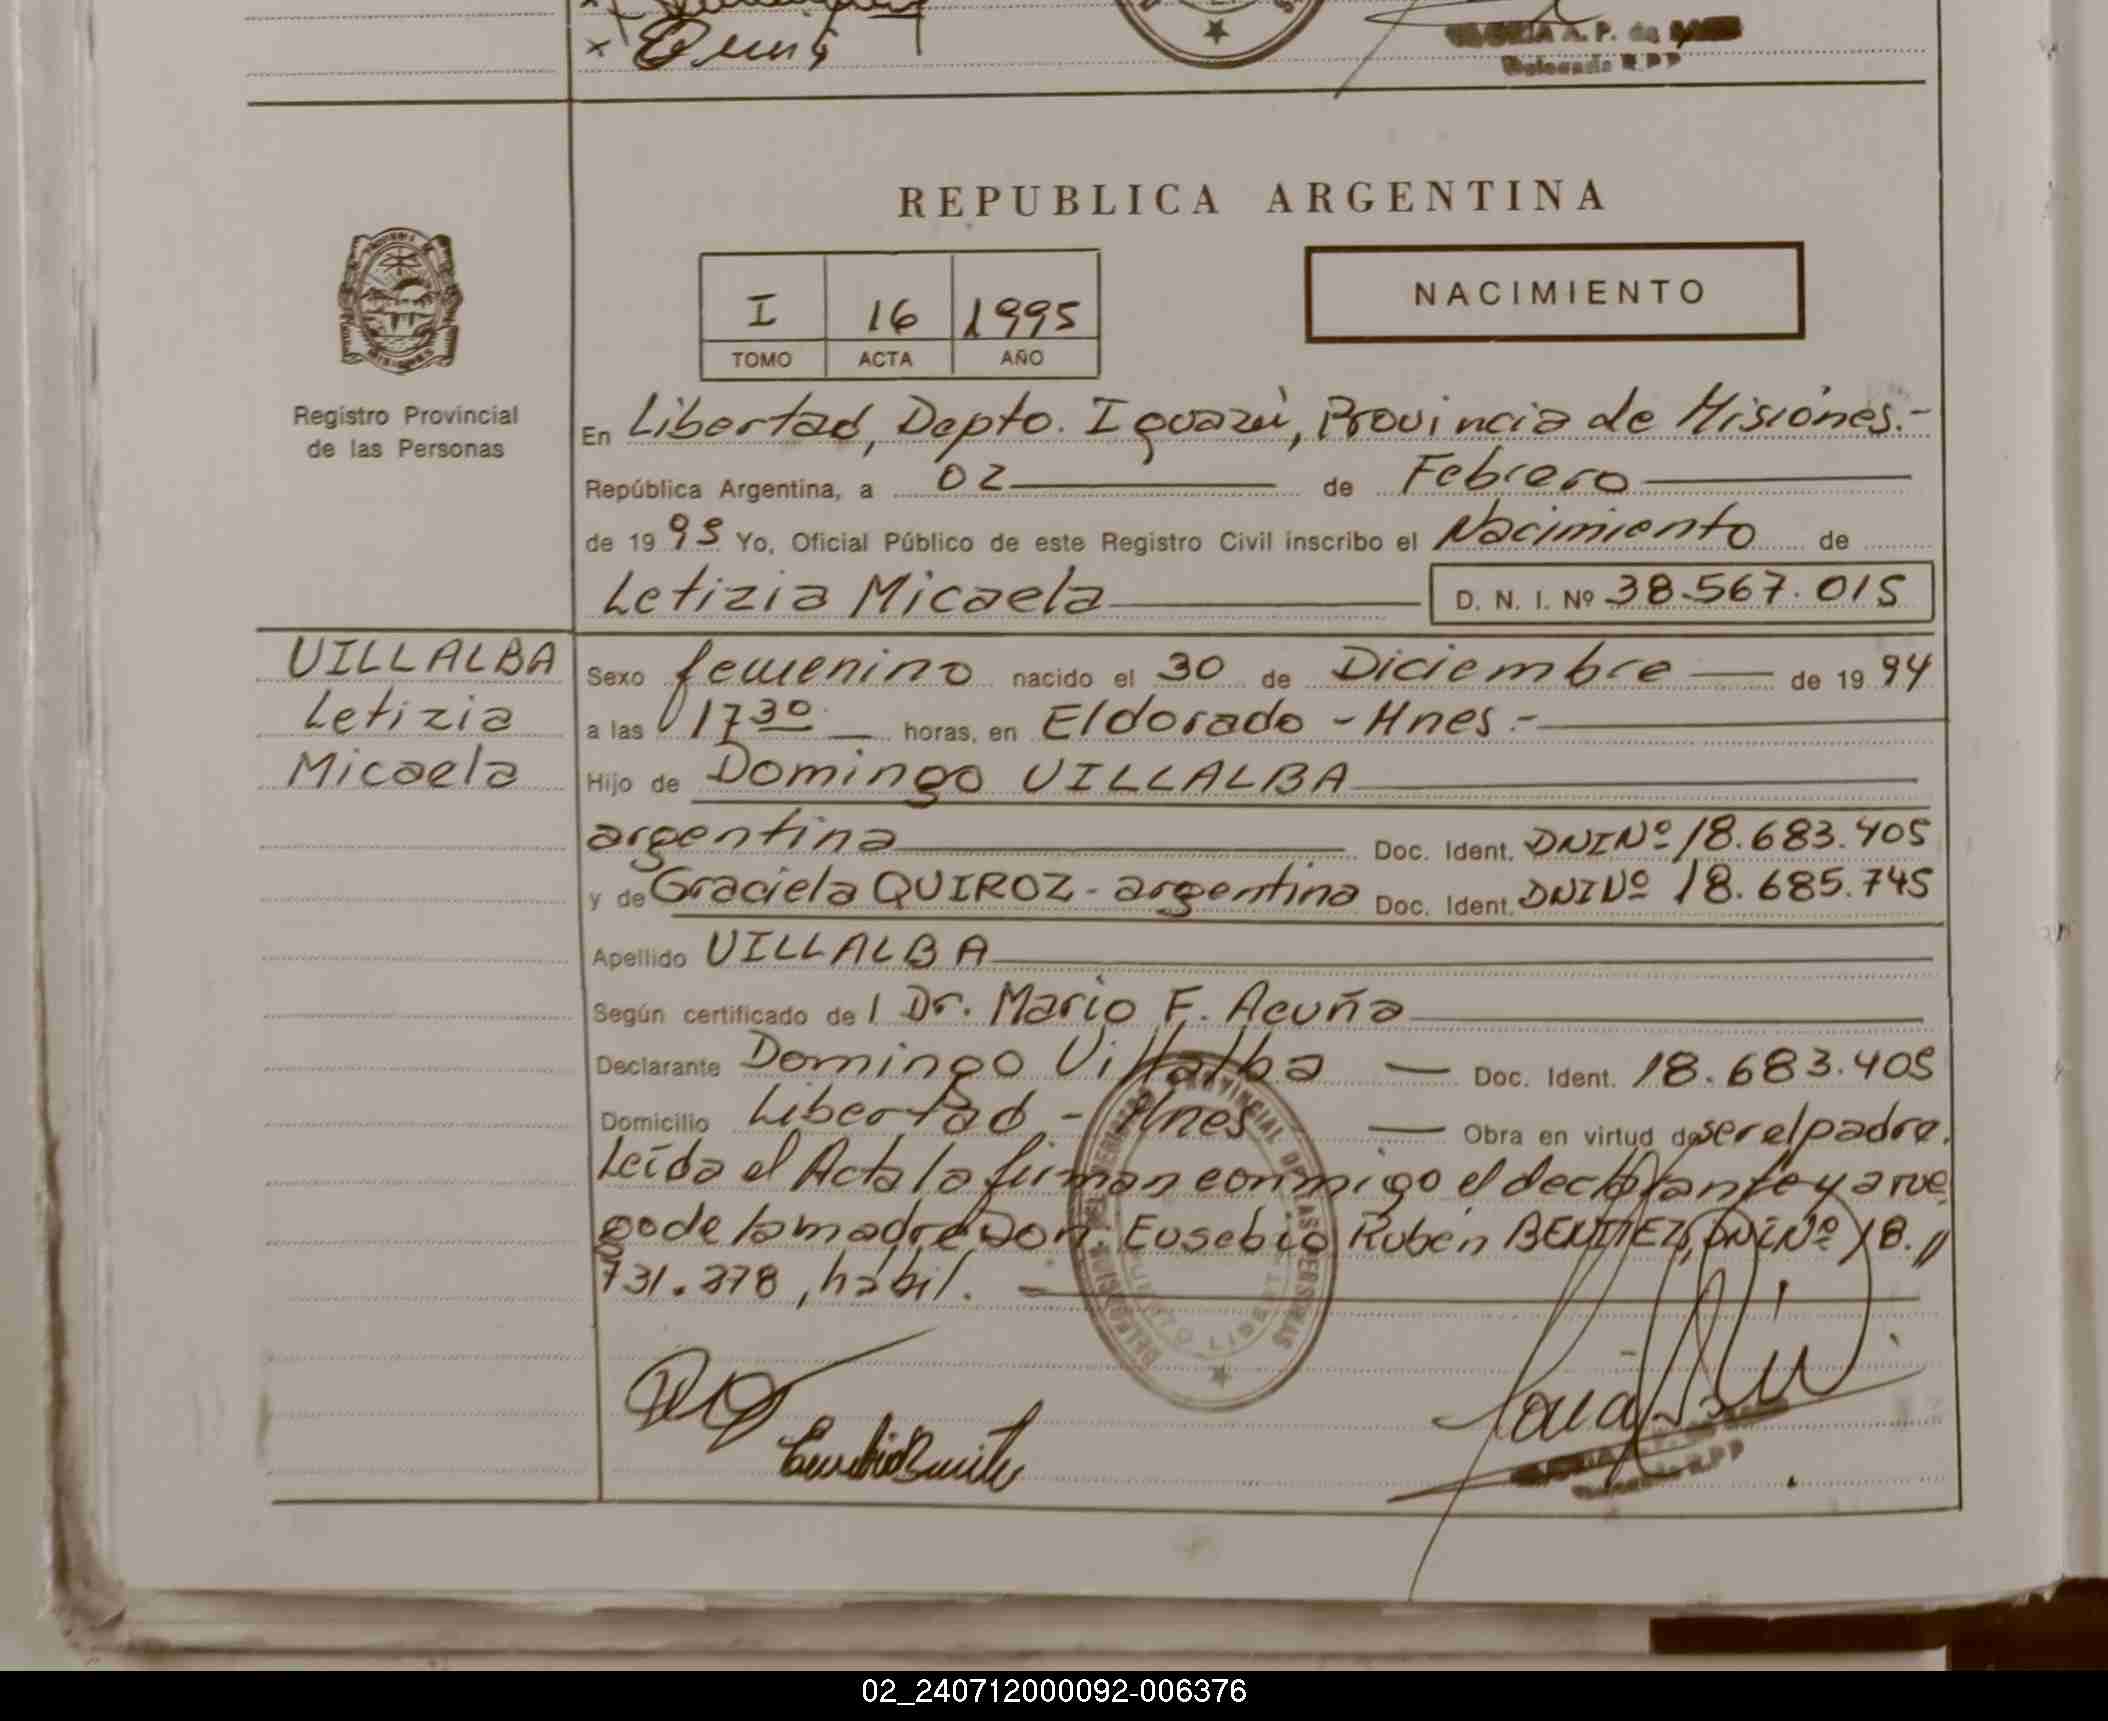 REPUBLICA ARGENTINA
I 16 1995
TOMO ACTA AÑO
NACIMIENTO
Registro Provincial
de las Personas
En Libertad, Depto. Iguazú, Provincia de Misiones.-
República Argentina, a 02 de Febrero
de 1995 Yo, Oficial Público de este Registro Civil inscribo el Nacimiento de
Letizia Micaela D. N. I. Nº 38.567.015
VILLALBA
Letizia
Micaela
Sexo femenino nacido el 30 de Diciembre de 1994
a las 17 30 horas, en Eldorado - Mnes.-
Hijo de Domingo VILLALBA
argentina Doc. Ident. DNI Nº 18.683.405
y de Graciela QUIROZ - argentina Doc. Ident. DNI Nº 18.685.745
Apellido VILLALBA
Según certificado de l Dr. Mario F. Acuña
Declarante Domingo Villalba Doc. Ident. 18.683.405
Domicilio Libertad - Mnes Obra en virtud de ser el padre.
Leída el Acta la firman conmigo el declarante y a rue
go de la madre Don Eusebio Rubén BENITEZ, DNI Nº 18.//
731.278, hábil.
02_240712000092-006376